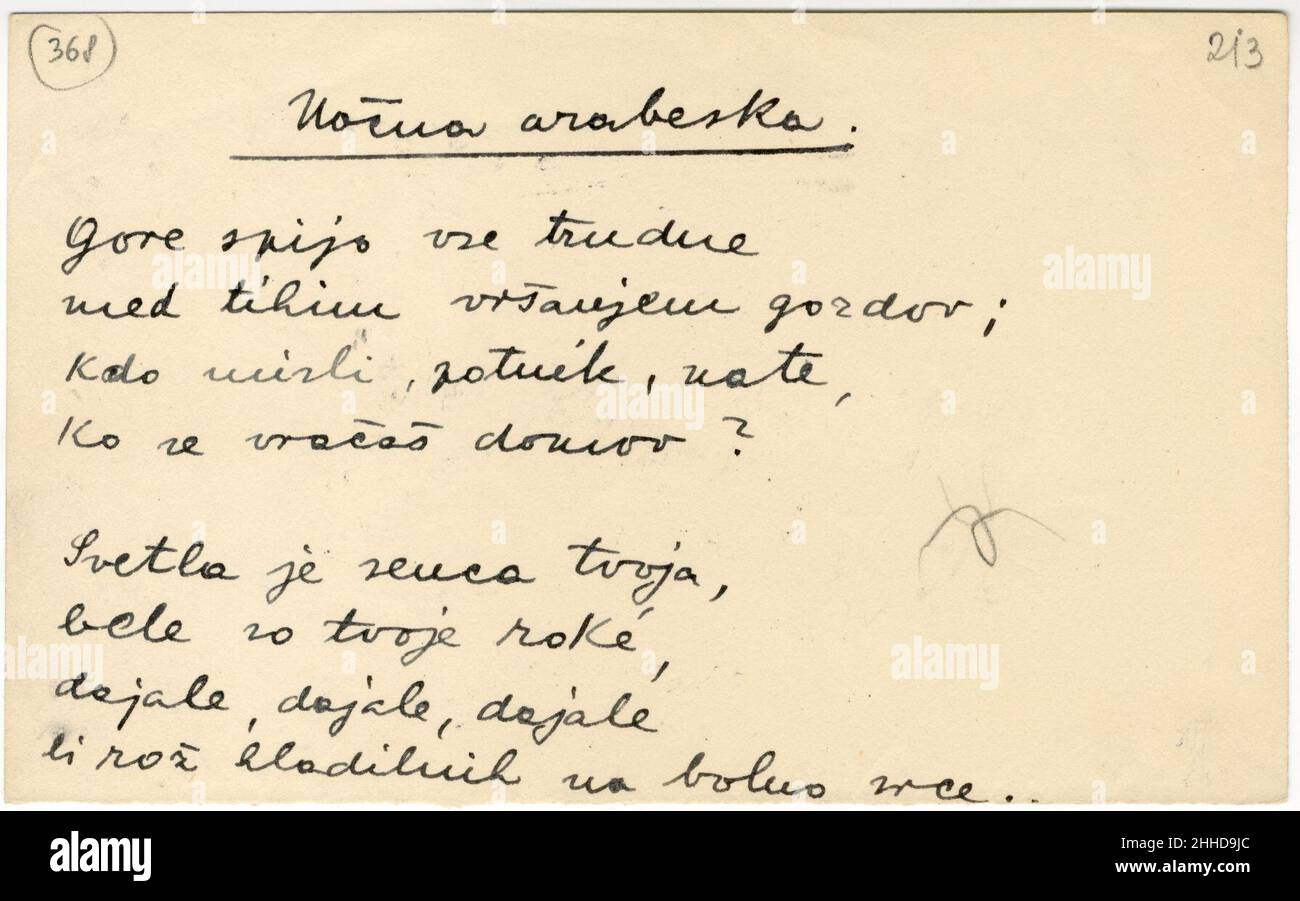 368
213
Nočna arabeska.
Gore spijo vse trudne
med tihim vršanjem gozdov;
Kdo misli, potnik, nate,
Ko se vračaš domov?
Svetla je senca tvoja,
bele so tvoje roké,
dajale, dajale, dajale
ti rož hladilnih na bolno srce..
alamy
Image ID: 2HHD9JC
www.alamy.com